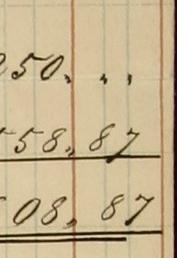 250. . .
58,87
08,87